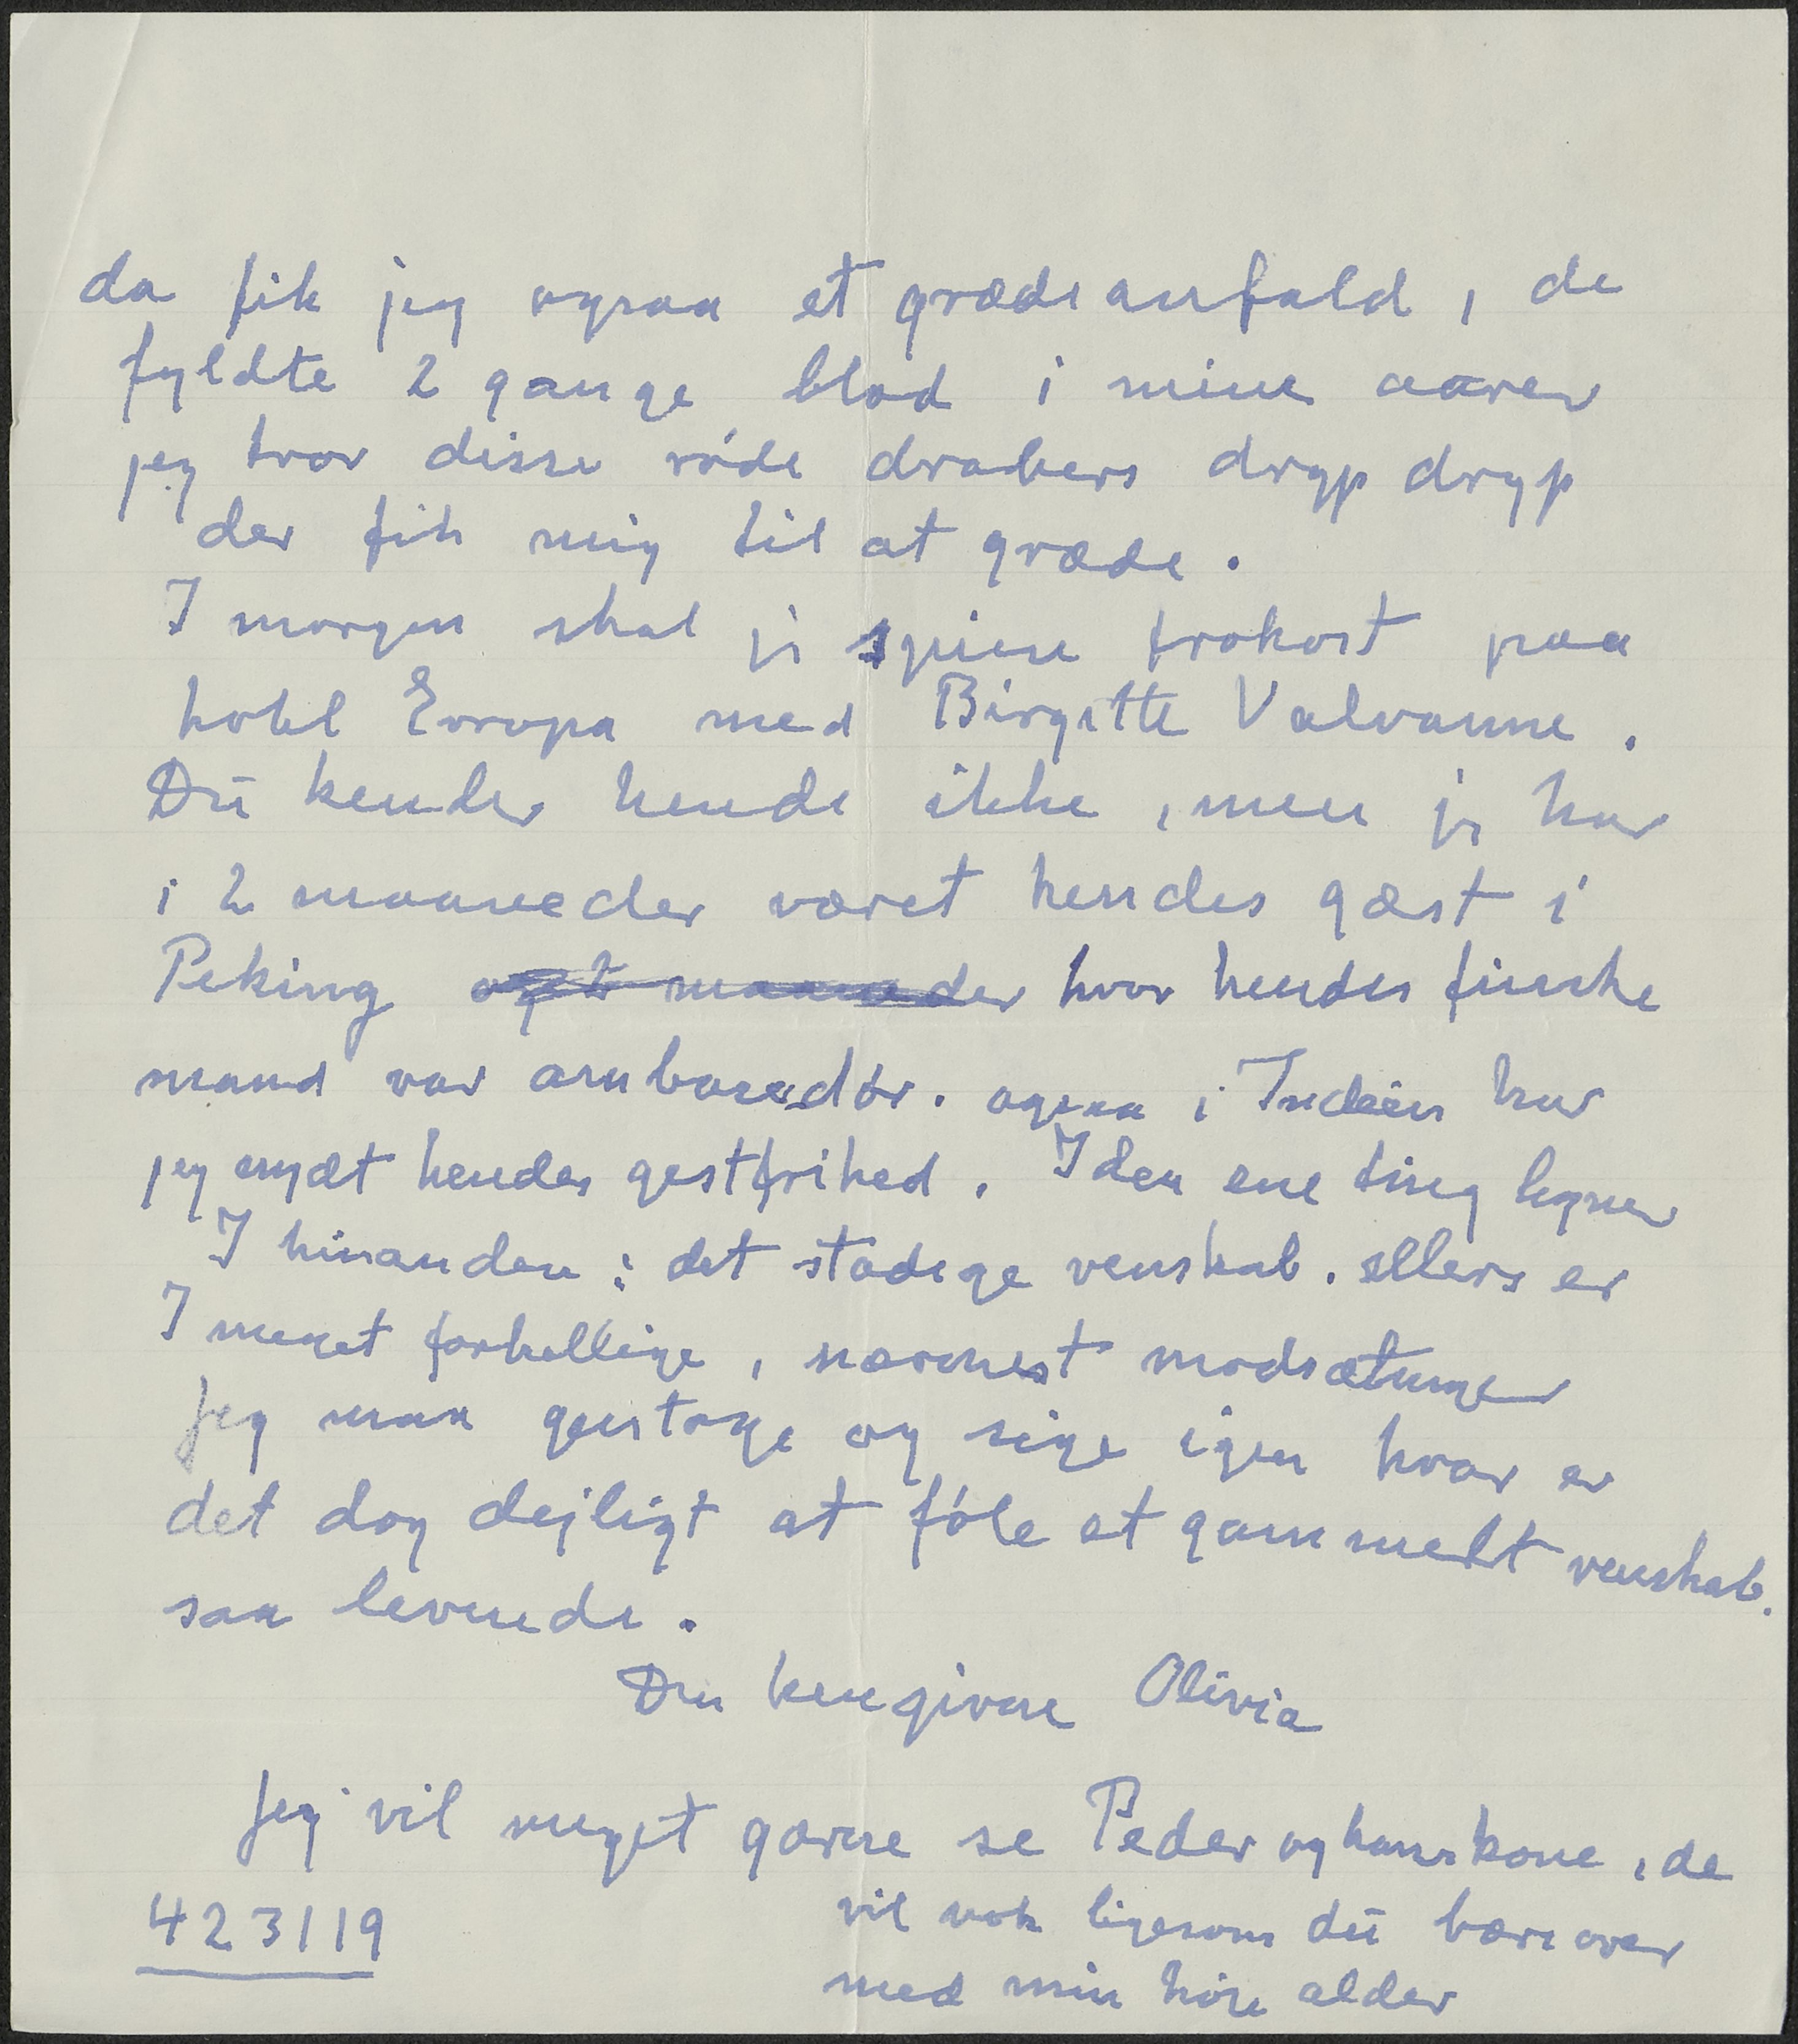 da fik jeg ogsaa et grædeanfald, de
fyldte 2 gange blod i mine aarer
jeg tror disse röde drabers dryp dryp
der fik mig til at græde.
I morgen skal jeg spise frokost paa
hotel Evropa med Birgitte Valvanne.
Du kender hende ikke, men jeg har
i 2 maaneder været hendes gæst i
Peking og 2 maaneder hvor hendes finske
mand var ambasadör. ogsaa i Indien har
jeg nydt hendes gestfrihed. I den ene ting ligner
I hinanden: det stadige venskab. ellers er
I meget forkellige, nærmest modsætninger
Jeg maa gentage og sige igen hvor er
det dog dejligt at föle et gammelt venskab.
saa levende.
Din hengivne Olivia
Jeg vil meget gærne se Peder og hans kone, de
vil nok ligesom du bære over
med min höje alder
423119